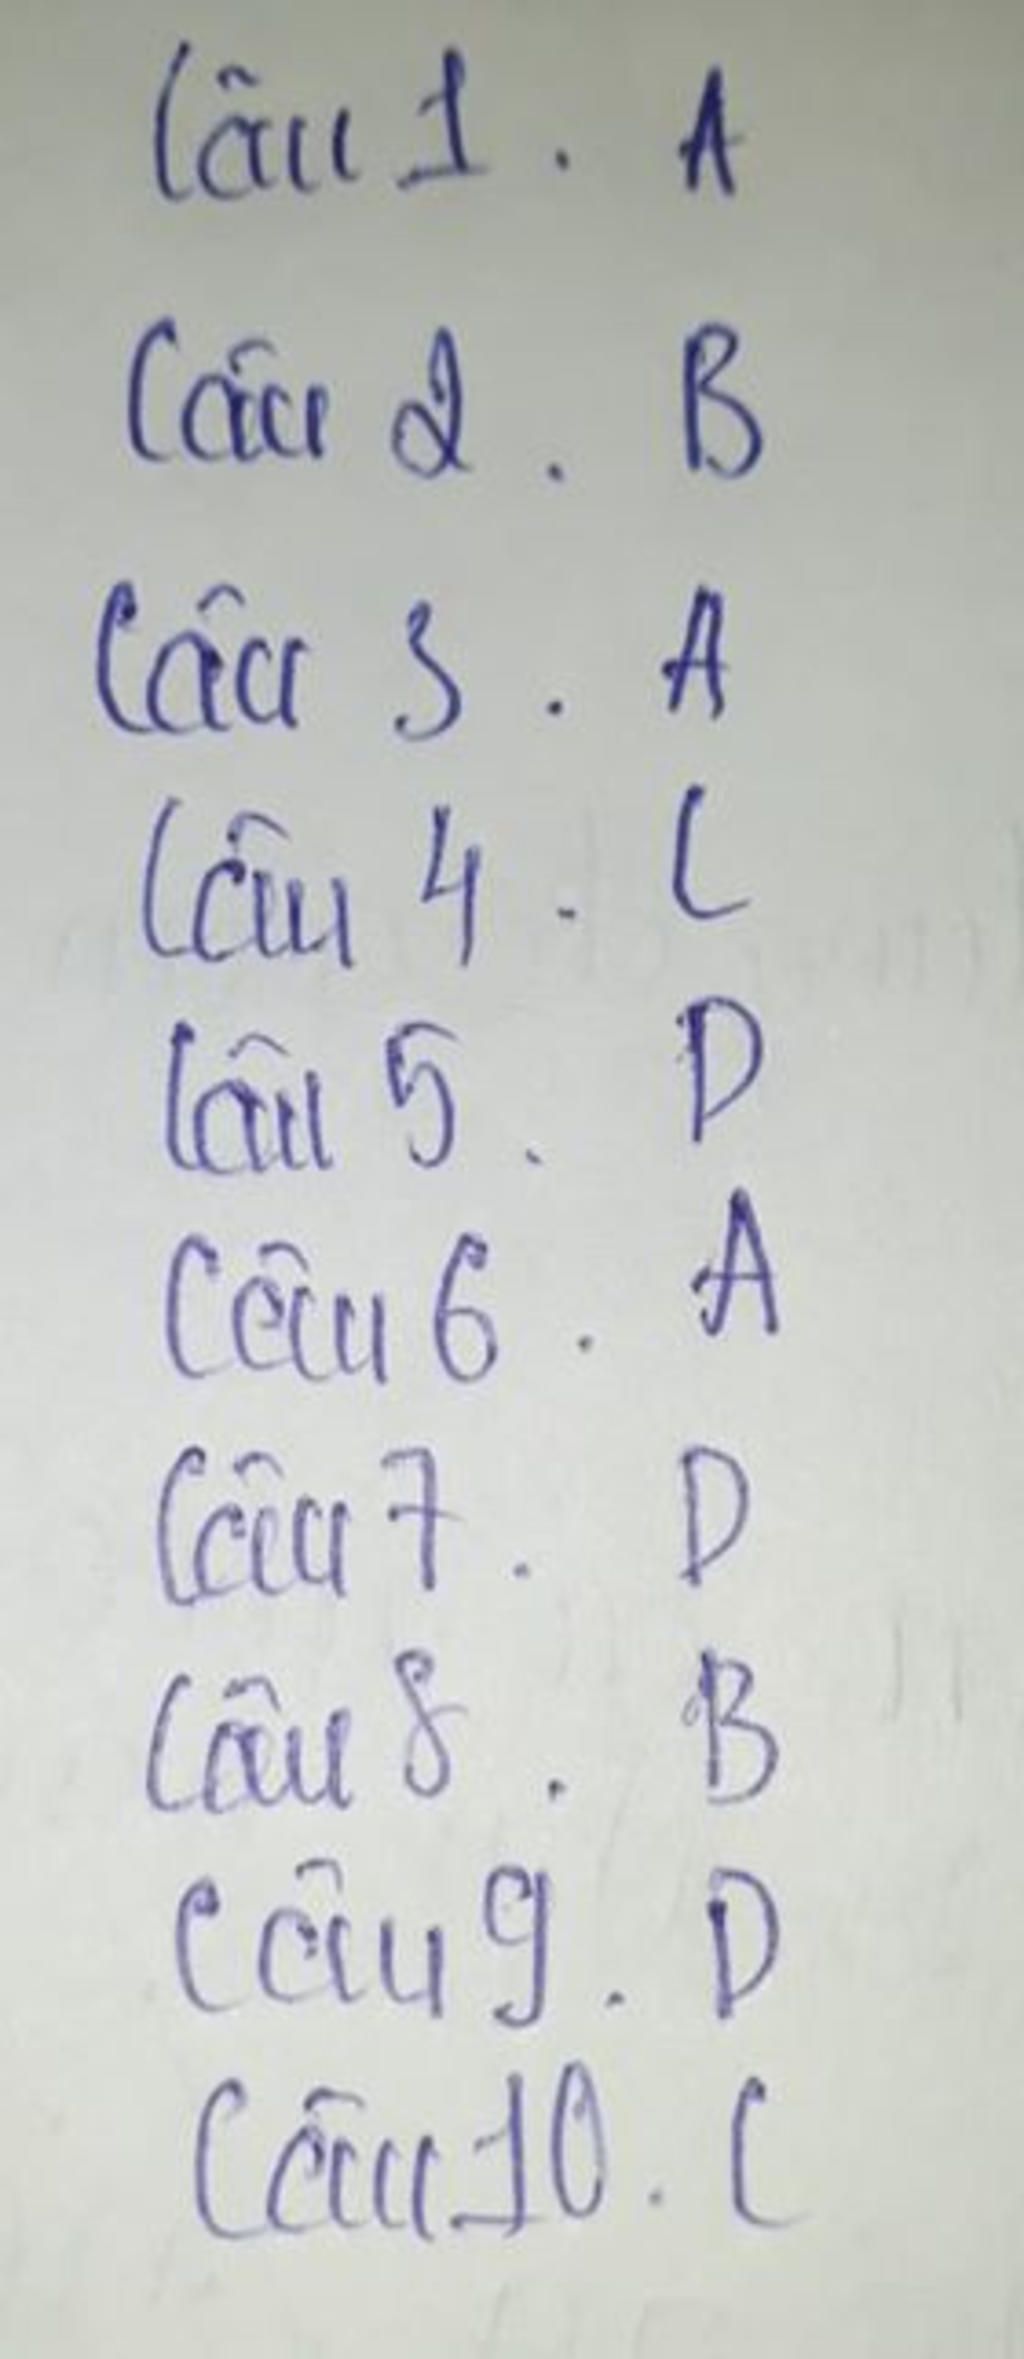 Câu 1. A
Câu 2. B
Câu 3. A
Câu 4. C
Câu 5. D
Câu 6. A
Câu 7. D
Câu 8. B
Câu 9. D
Câu 10. C